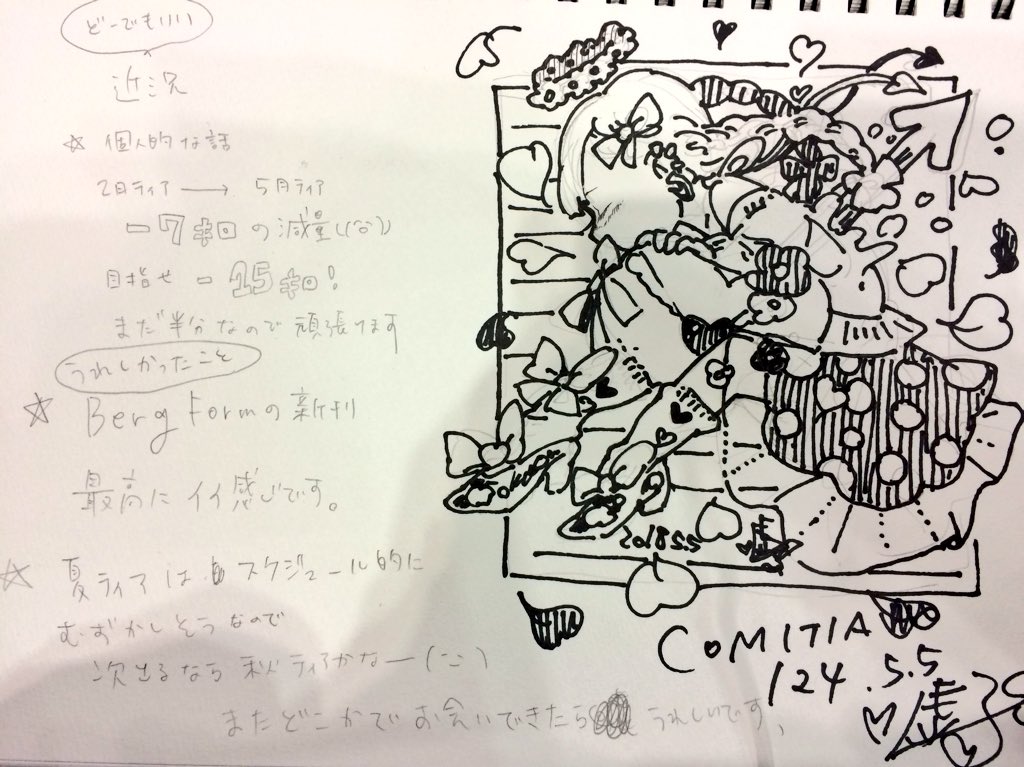 どーでもいい
近況
☆ 個人的な話
2月ティア → 5月ティア
-7キロの減量!(^^)
目指せ -15キロ!
まだ半分なので頑張ります
うれしかったこと
☆ Berg Formの新刊
最高にイイ感じです。
☆ 夏ティアはスケジュール的に
むずかしそうなので
次出るなら秋ティアかなー(--)
またどこかでお会いできたら うれしいです、
2018.5.5
COMITIA
124 .5.5